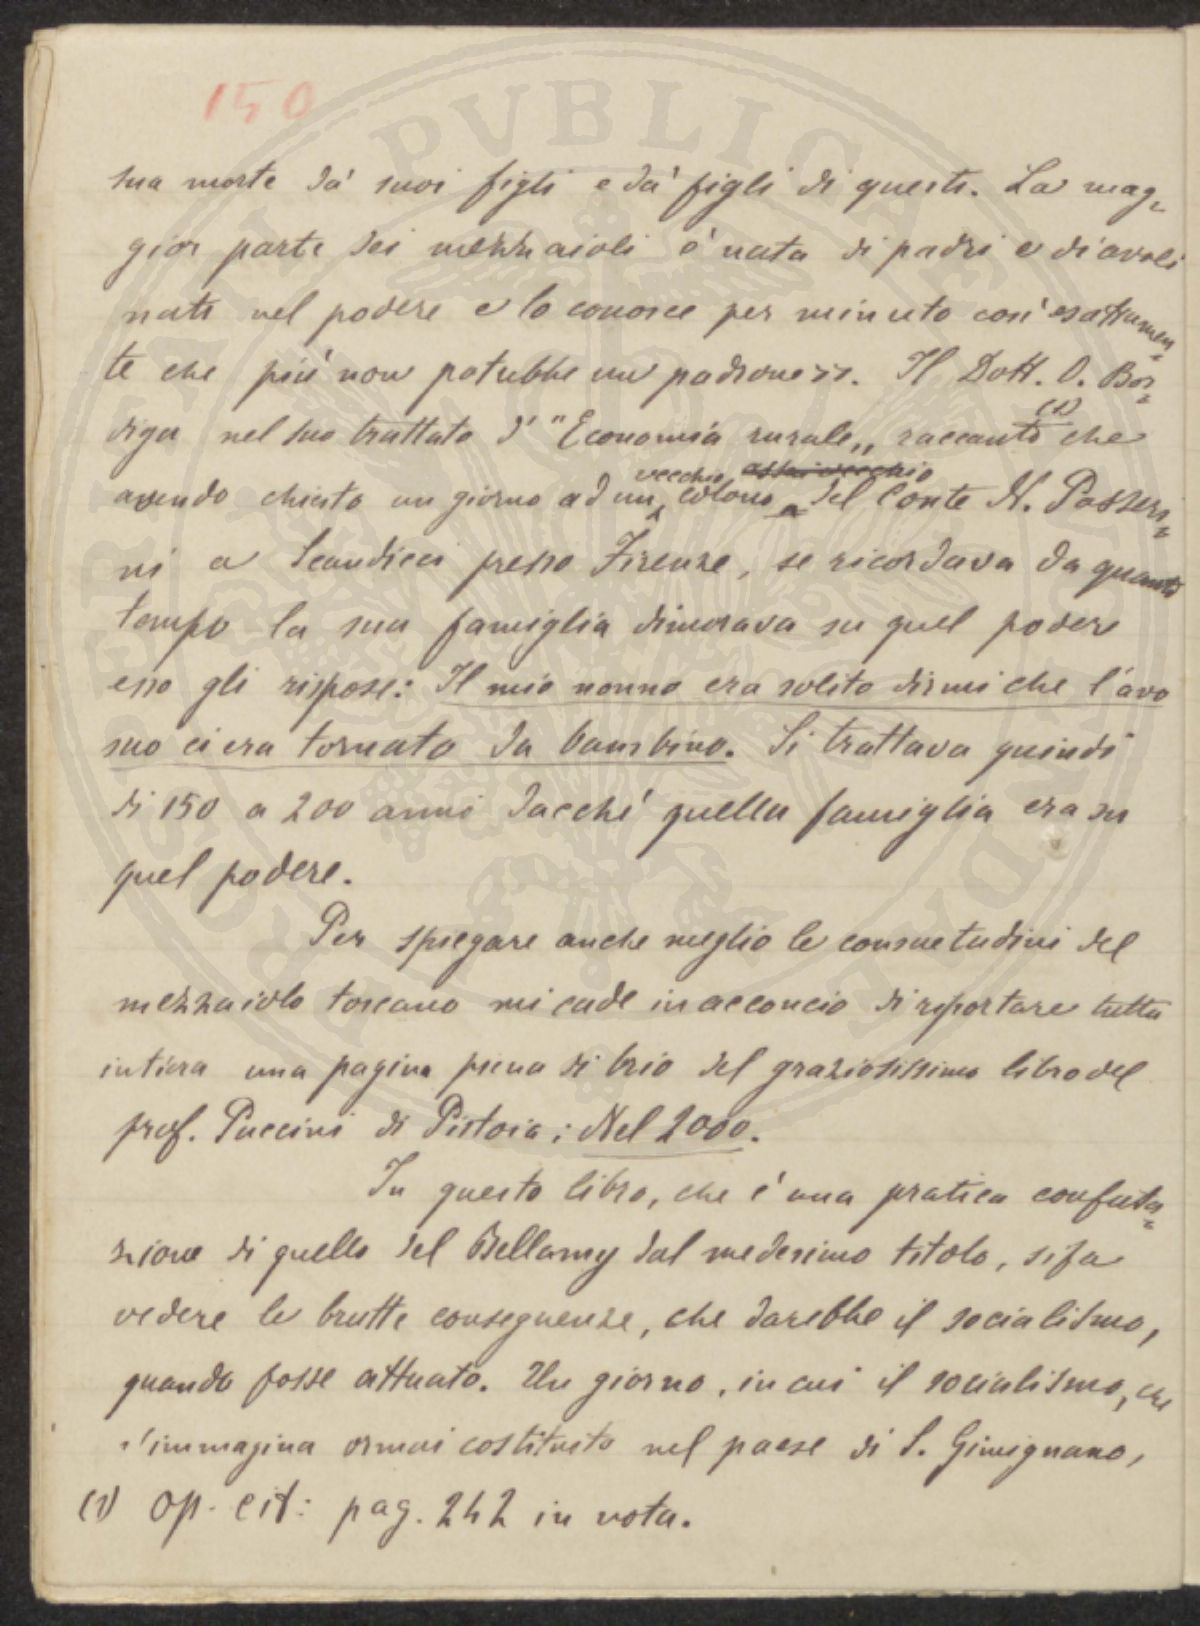 150
sua morte dà suoi figli e dà figli di questi. La mag=
gior parte dei mezzaioli è nata di padri e di avoli
nati nel podere e lo conosce per minuto così esattamen=
te che più non potrebbe un padrone ››. Il Dott. O. Bor=
diga nel suo trattato d' "Economia rurale„ raccontò (1) che
avendo chiesto un giorno ad un vecchio colono assai vecchio del Conte N. Passeri=
ni a Scandicci presso Firenze, se ricordava da quanto
tempo la sua famiglia dimorava su quel podere
esso gli rispose: Il mio nonno era solito dirmi che l'avo
suo ci era tornato da bambino. Si trattava quindi
di 150 a 200 anni dacché quella famiglia era su
quel podere.
Per spiegare anche meglio le consuetudini del
mezzaiolo toscano mi cade in acconcio di riportare tutta
intiera una pagina piena di brio del graziosissimo libro del
prof. Puccini di Pistoia: Nel 2000.
In questo libro, che è una pratica confuta=
zione di quello del Bellamy dal medesimo titolo, si fa
vedere le brutte conseguenze, che darebbe il socialismo,
quando fosse attuato. Un giorno, in cui il socialismo, che
s'immagina ormai costituito nel paese di S. Gimignano,
(1) op. cit: pag. 242 in nota.